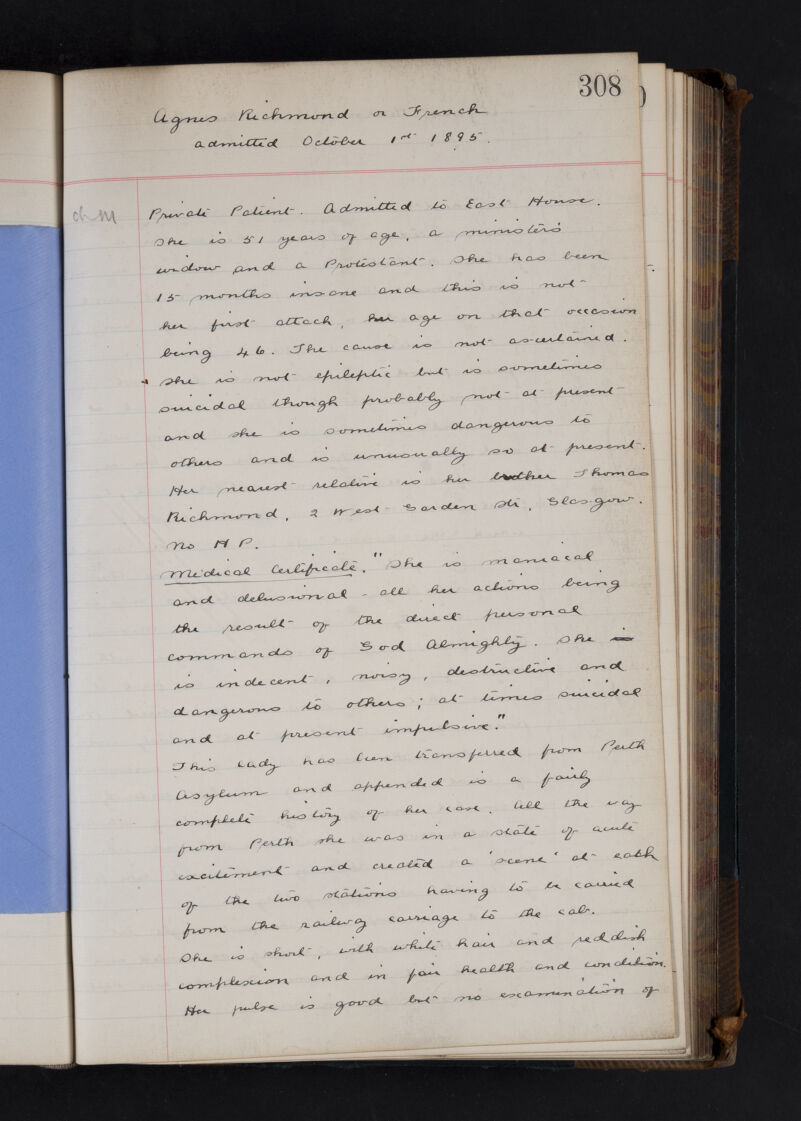 308
Agnes Richmond or French
admitted October 1st 1895.
ch M
Private Patient. Admitted to East House.
She is 51 years of age, a minister's
widow and a Protestant. She has been
15 months insane and this is not
her first attack, her age on that occasion
being 46. The cause is not ascertained.
She is not epileptic but is sometimes
suicidal though probably not at present
and she is sometimes dangerous to
others and is unusually so at present.
Her nearest relative is her brother Thomas
Richmond, 2 West Garden St, Glasgow.
No H P.
Medical Certificate. "She is maniacal
and delusional - all her actions being
the result of the direct personal
commands of God Almighty. She is
is indecent, noisy, destructive and
dangerous to others; at times suicidal
and at present impulsive."
This lady has been transferred from Perth
Asylum and appended is a fairly
complete history of her case. All the way
from Perth she was in a state of acute
excitement and created a 'scene' at each
of the two stations having to be carried
from the railway carriage to the cab.
She is short, with white hair and reddish
complexion and in fair health and condition.
Her pulse is good but no examination of